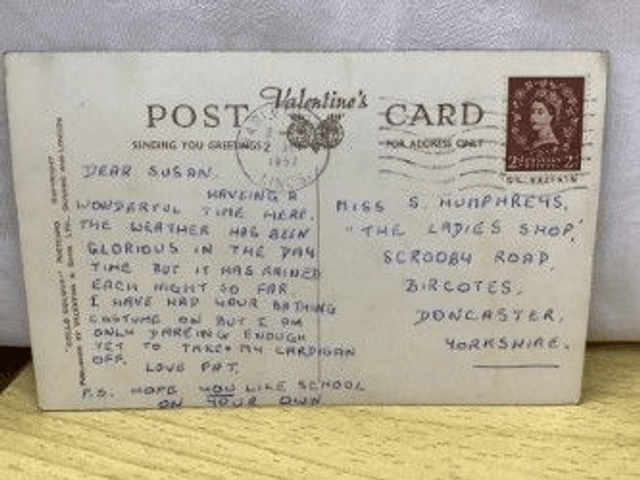 POST Valentine's CARD
SENDING YOU GREETINGS FOR ADDRESS ONLY
1957
2D 2D
DEAR SUSAN.
HAVEING A
WONDERFUL TIME HERE.
THE WEATHER HAS BEEN
GLORIOUS IN THE DAY
TIME BUT IT HAS RAINED
EACH NIGHT SO FAR
I HAVE HAD YOUR BATHING
COSTUME ON BUT I AM
ONLY DAREING ENOUGH
YET TO TAKE MY CARDIGAN
OFF. LOVE PAT.
P.S. HOPE YOU LIKE SCHOOL
ON YOUR OWN
MISS S. HUMPHREYS,
"THE LADIES SHOP,"
SCROOBY ROAD,
BIRCOTES,
DONCASTER,
YORKSHIRE.
PUBLISHED BY VALENTINE & SONS LTD., DUNDEE AND LONDON
COPYRIGHT